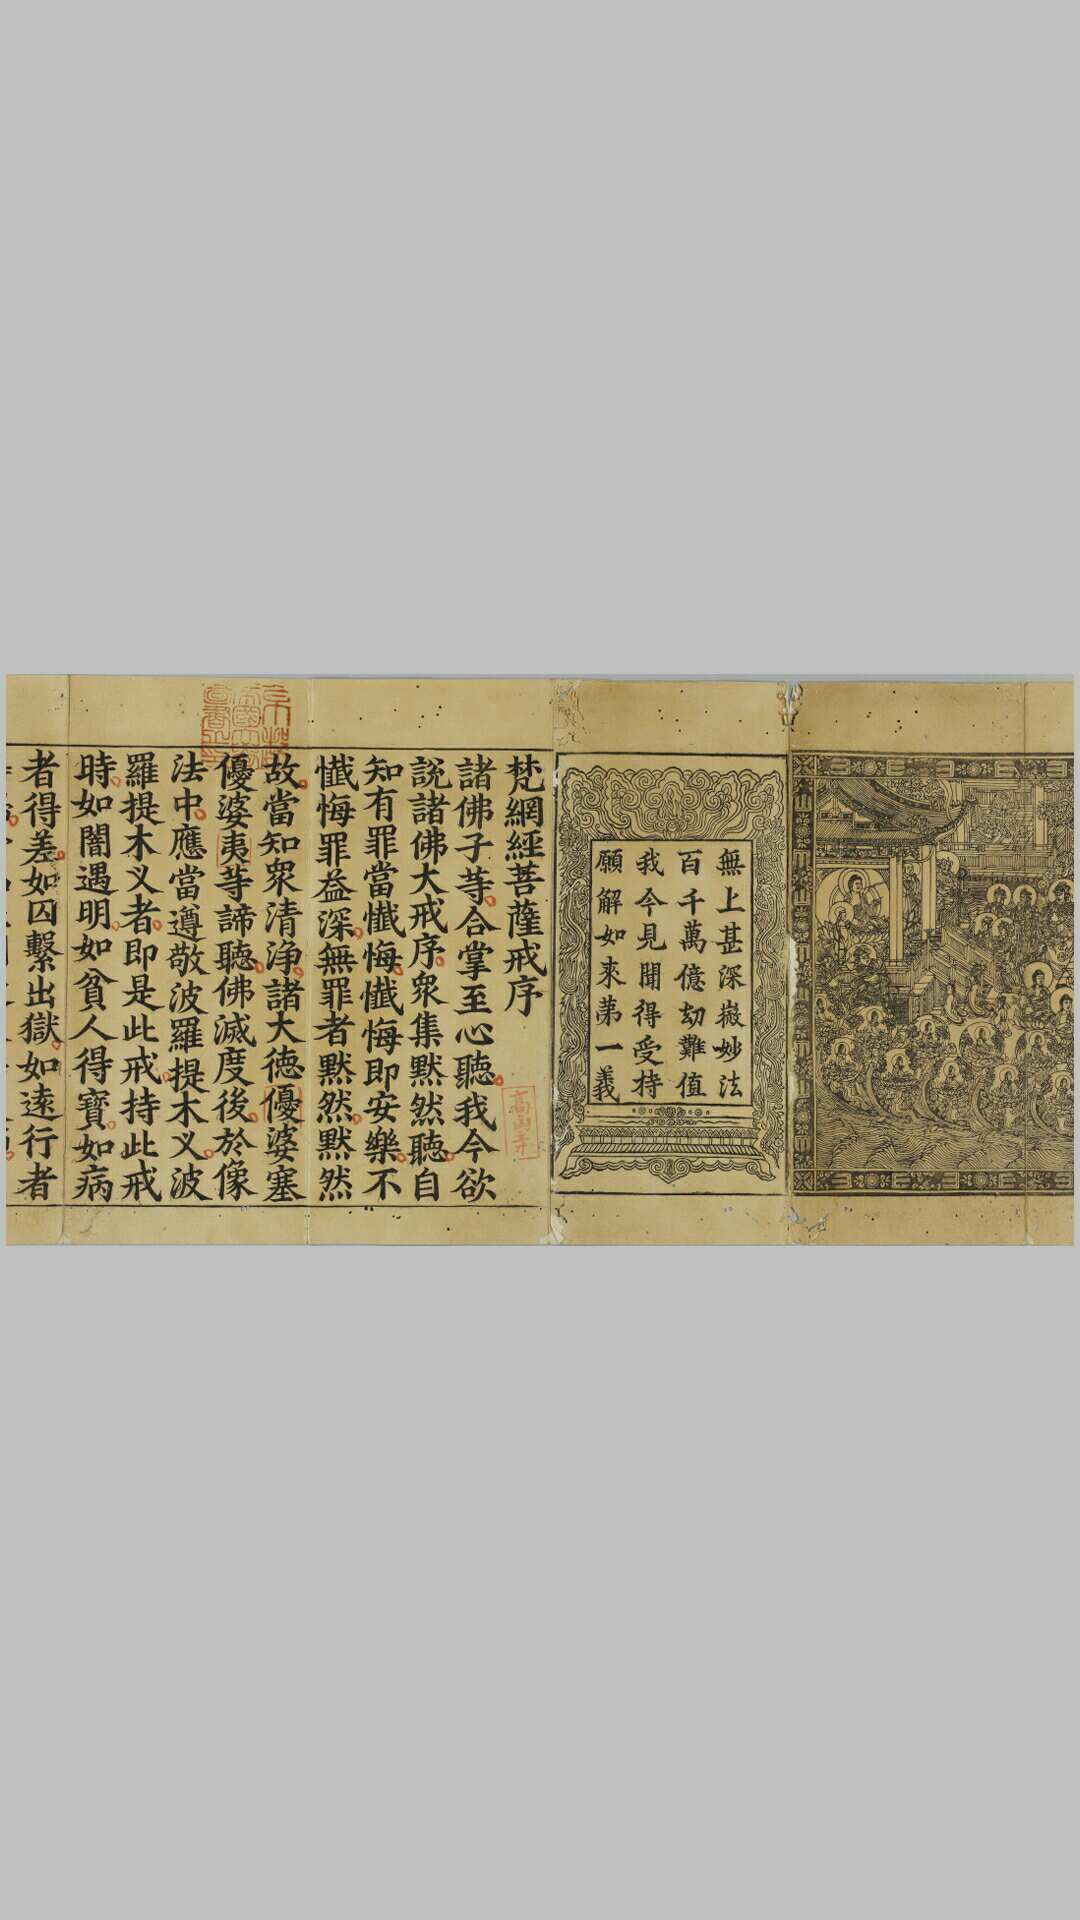 無上甚深微妙法
百千萬億劫難值
我今見聞得受持
願解如來第一義
梵網經菩薩戒序
諸佛子等合掌至心聽我今欲
說諸佛大戒序衆集默然聽自
知有罪當懺悔懺悔即安樂不
懺悔罪益深無罪者默然默然
故當知衆清淨諸大德優婆塞
優婆夷等諦聽佛滅度後於像
法中應當遵敬波羅提木义波
羅提木义者即是此戒持此戒
時如闇遇明如貧人得寶如病
者得差如囚繫出獄如遠行者
高山寺